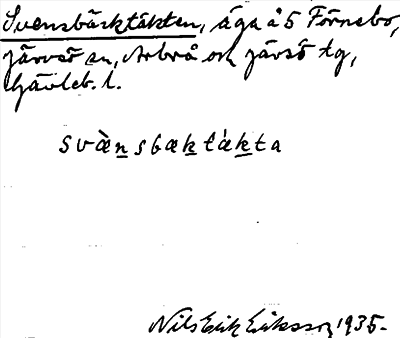 Svensbäcktäkten, äga å 5 Förnebo,
Järvsö sn, Arbrå och Järvsö tg,
Gävleb. l.
svὰnsbæktǽkta
Nils Erik Eriksson 1935.